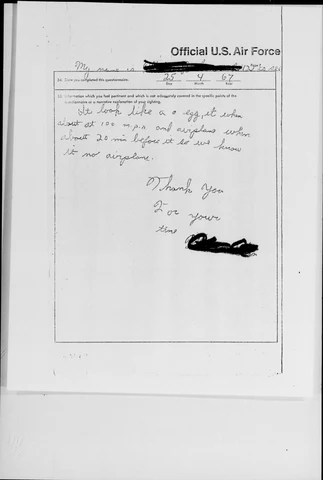 Official U.S. Air Force
My name is
34. Date you completed this questionnaire: 25 4 67
Day Month Year
35. Information which you feel pertinent and which is not adequately covered in the specific points of the
questionnaire or a narrative explanation of your sighting.
It look like a egg, it when
about at 100 m.p.h and airplane when
about 20 min before it so we know
it no airplane.
Thank You
For your
time